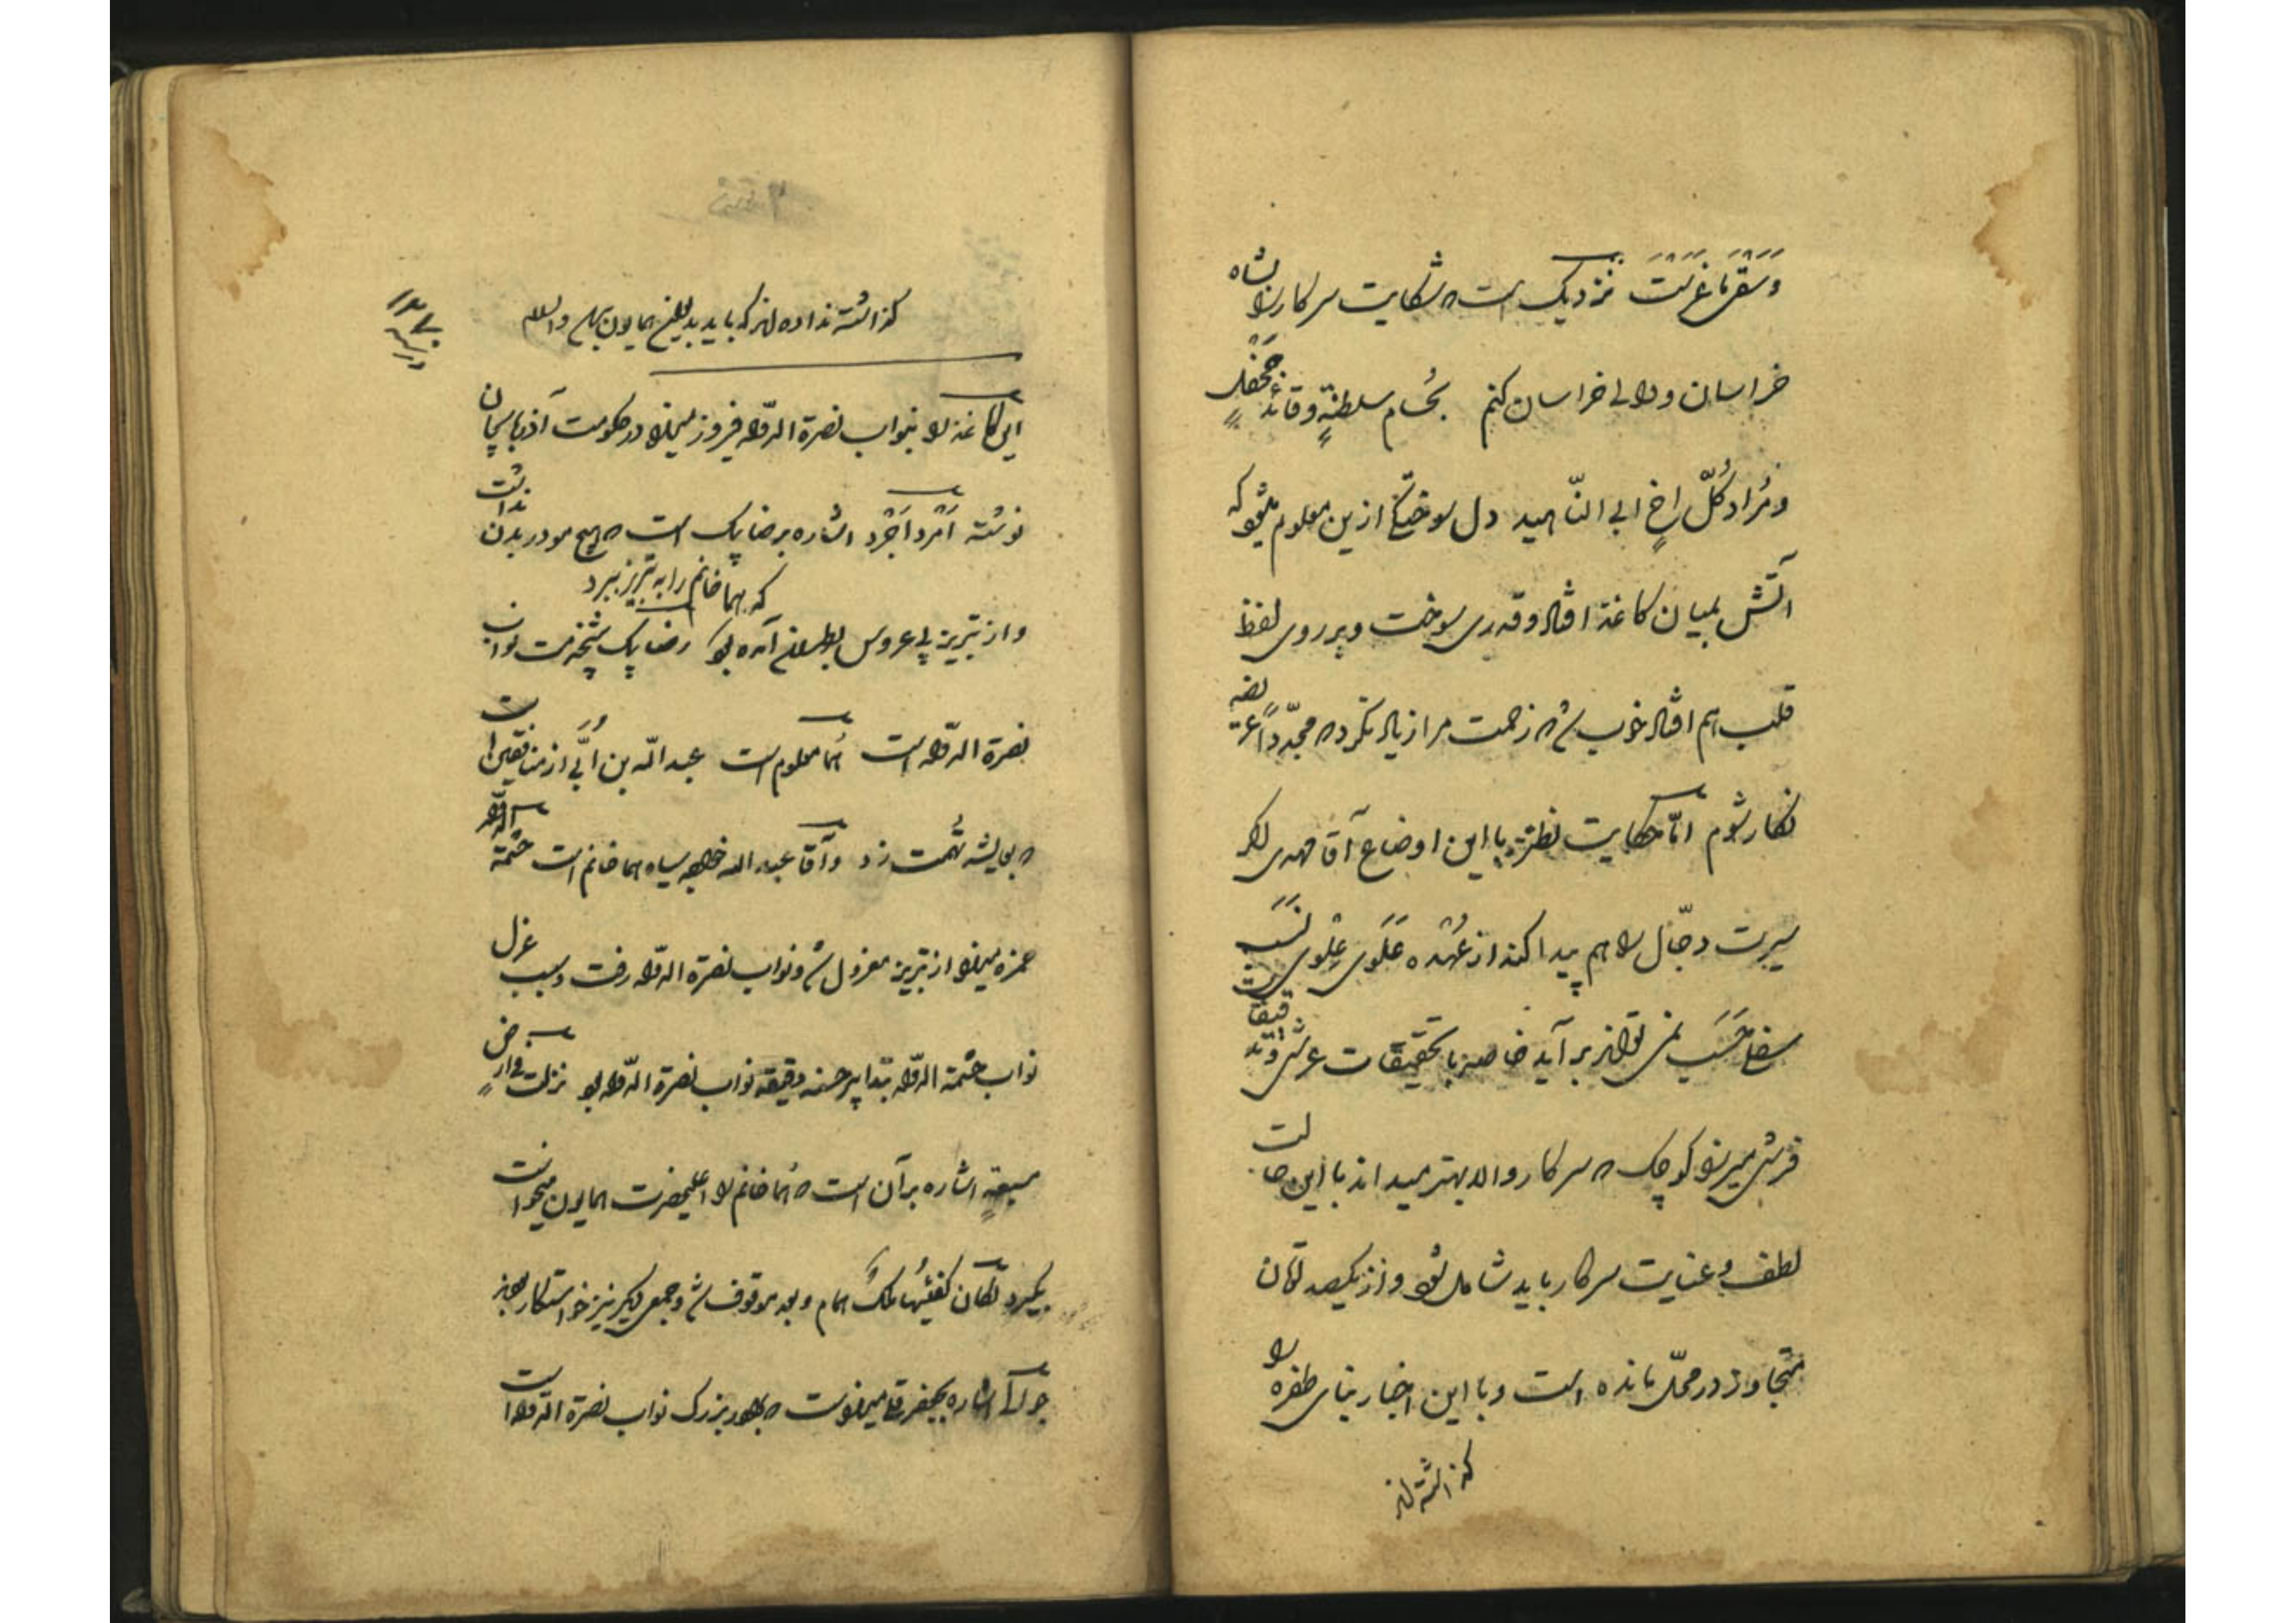 وسقر ما غرست نزدیک است که شکایت سرکار والا شاه
خراسان و والی خراسان کنم بحسام سلطنة وقائد جحفل
ومراد کل اخ ابی النّاهید دل سوختگی ازین معلوم میشود که
آتش بمیان کاغذ افتاد و قدری سوخت و بر روی لفظ
قلب هم افتاد خوب شد که زحمت مرا زیاد نکرد که مجدّداً عریضه
نگار شوم امّا حکایت با این اوضاع آقا مهدی اگر
سیرت دجّال را هم پیدا کند از عهده علوی علوی نسب
سفلی حسب نمی تواند برآید خاصه با تحقیقات عرشی و تدقیقات
فرشی میرزا کوچک که سرکار والا بهتر میدانند با این حالت
لطف و عنایت سرکار باید شامل شود و از یکصد تومان
متجاوز در محل مانده است و با این اخبار بنای طفره را
گذاشته اند
گذاشته نداده اند که باید بمبلغ همایون برسد والسلام
این کاغذ را بنواب نصرة الدّوله فیروز میرزا در حکومت آذربایجان
نوشته امرد اجرد اشاره برضا بیک است که هیچ مو در بدن نداشت
و از تبریز پی عروس بطهران آمده بود که هما خانم را به تبریز ببرد رضا بیک پیشخدمت نواب
نصرة الدّوله است هما معلوم است عبد الله بن اُبَیّ از منافقین است
که بعایشه تهمت زد و آقا عبد الله خواجه سیاه هما خانم است حشمة الدّوله
حمزه میرزا از تبریز معزول شد و نواب نصرة الدّوله رفت و سبب عزل
نواب حشمة الدّوله تدابیر حسنه دقیقه نواب نصرة الدّوله بود نزلت فی ارض
مسبعة اشاره بر آن است که هما خانم را اعلیحضرت همایون میخواست
بگیرد و بعد موقوف شد و جمعی دیگر نیز خواستکار بودند
اشاره بجعفر قلی میرزاست که برادر بزرک نواب نصرة الدّوله است